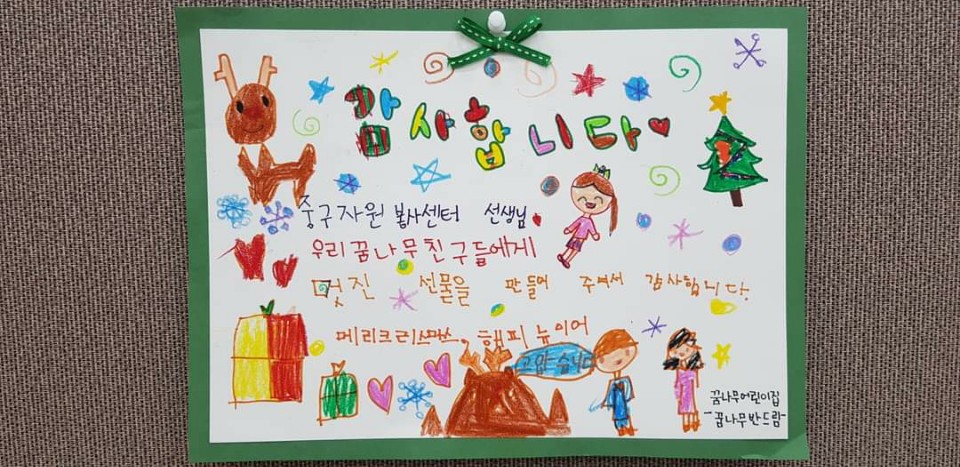 감사합니다
중구자원봉사센터 선생님
우리꿈나무친구들에게
멋진 선물을 만들어 주셔서 감사합니다.
메리크리스마스. 해피뉴이어
고맙습니다
꿈나무어린이집
-꿈나무반드림-